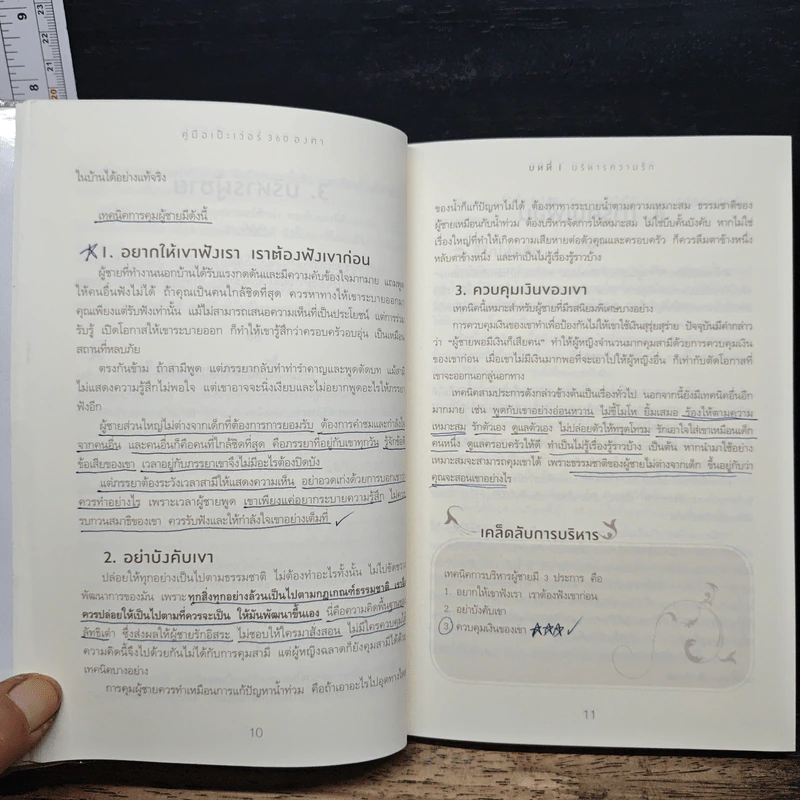 9
8
23
22
21
20
คู่มือเป๊ะเว่อร์ 360 องศา
ในบ้านได้อย่างแท้จริง
เทคนิคการคุมผู้ชายมีดังนี้
1. อยากให้เขาฟังเรา เราต้องฟังเขาก่อน
ผู้ชายที่ทำงานนอกบ้านได้รับแรงกดดันและมีความคับข้องใจมากมาย แถมพูด
ให้คนอื่นฟังไม่ได้ ถ้าคุณเป็นคนใกล้ชิดที่สุด ควรหาทางให้เขาระบายออกมา
คุณเพียงแต่รับฟังเท่านั้น แม้ไม่สามารถเสนอความเห็นที่เป็นประโยชน์ แต่การร่วม
รับรู้ เปิดโอกาสให้เขาระบายออก ก็ทำให้เขารู้สึกว่าครอบครัวอบอุ่น เป็นเหมือน
สถานที่หลบภัย
ตรงกันข้าม ถ้าสามีพูด แต่ภรรยากลับทำท่ารำคาญและพูดตัดบท แม้สามี
ไม่แสดงความรู้สึกไม่พอใจ แต่เขาอาจจะนิ่งเงียบและไม่อยากพูดอะไรให้ภรรยา
ฟังอีก
ผู้ชายส่วนใหญ่ไม่ต่างจากเด็กที่ต้องการการยอมรับ ต้องการคำชมและกำลังใจ
จากคนอื่น และคนอื่นก็คือคนที่ใกล้ชิดที่สุด คือภรรยาที่อยู่กับเขาทุกวัน รู้จักข้อดี
ข้อเสียของเขา เวลาอยู่กับภรรยาเขาจึงไม่มีอะไรต้องปิดบัง
แต่ภรรยาต้องระวังเวลาสามีให้แสดงความเห็น อย่าอวดเก่งด้วยการบอกเขาว่า
ควรทำอย่างไร เพราะเวลาผู้ชายพูด เขาเพียงแค่อยากระบายความรู้สึก ไม่ควร
รบกวนสมาธิของเขา ควรรับฟังและให้กำลังใจเขาอย่างเต็มที่
2. อย่าบังคับเขา
ปล่อยให้ทุกอย่างเป็นไปตามธรรมชาติ ไม่ต้องทำอะไรทั้งนั้น ไม่ไปขัดขวาง
พัฒนาการของมัน เพราะทุกสิ่งทุกอย่างล้วนเป็นไปตามกฎเกณฑ์ธรรมชาติ เราจึง
ควรปล่อยให้เป็นไปตามที่ควรจะเป็น ให้มันพัฒนาขึ้นเอง นี่คือความคิดพื้นฐานของ
ลัทธิเต๋า ซึ่งส่งผลให้ผู้ชายรักอิสระ ไม่ชอบให้ใครมาสั่งสอน ไม่มีใครควบคุมได้
ความคิดนี้จึงไปด้วยกันไม่ได้กับการคุมสามี แต่ผู้หญิงฉลาดก็ยังคุมสามีได้ด้วย
เทคนิคบางอย่าง
การคุมผู้ชายควรทำเหมือนการแก้ปัญหาน้ำท่วม คือถ้าเอาอะไรไปอุดทางไหล
10
บทที่ 1 บริหารความรัก
ของน้ำก็แก้ปัญหาไม่ได้ ต้องหาทางระบายน้ำตามความเหมาะสม ธรรมชาติของ
ผู้ชายเหมือนกับน้ำท่วม ต้องบริหารจัดการให้เหมาะสม ไม่ใช่บีบคั้นบังคับ หากไม่ใช่
เรื่องใหญ่ที่ทำให้เกิดความเสียหายต่อตัวคุณและครอบครัว ก็ควรลืมตาข้างหนึ่ง
หลับตาข้างหนึ่ง และทำเป็นไม่รู้เรื่องรู้ราวบ้าง
3. ควบคุมเงินของเขา
เทคนิคนี้เหมาะสำหรับผู้ชายที่มีรสนิยมพิเศษบางอย่าง
การควบคุมเงินของเขาทำเพื่อป้องกันไม่ให้เขาใช้เงินสุรุ่ยสุร่าย ปัจจุบันมีคำกล่าว
ว่า “ผู้ชายพอมีเงินก็เสียคน” ทำให้ผู้หญิงจำนวนมากคุมสามีด้วยการควบคุมเงิน
ของเขาก่อน เมื่อเขาไม่มีเงินมากพอที่จะเอาไปให้ผู้หญิงอื่น ก็เท่ากับตัดโอกาสที่
เขาจะออกนอกลู่นอกทาง
เทคนิคสามประการดังกล่าวข้างต้นเป็นเรื่องทั่วไป นอกจากนี้ยังมีเทคนิคอื่นอีก
มากมาย เช่น พูดกับเขาอย่างอ่อนหวาน ไม่ขี้โมโห ยิ้มเสมอ ร้องไห้ตามความ
เหมาะสม รักตัวเอง ดูแลตัวเอง ไม่ปล่อยตัวให้ทรุดโทรม รักเอาใจใส่เขาเหมือนเด็ก
คนหนึ่ง ดูแลครอบครัวให้ดี ทำเป็นไม่รู้เรื่องรู้ราวบ้าง เป็นต้น หากนำมาใช้อย่าง
เหมาะสมจะสามารถคุมเขาได้ เพราะธรรมชาติของผู้ชายไม่ต่างจากเด็ก ขึ้นอยู่กับว่า
คุณจะสอนเขาอย่างไร
เคล็ดลับการบริหาร
เทคนิคการบริหารผู้ชายมี 3 ประการ คือ
1. อยากให้เขาฟังเรา เราต้องฟังเขาก่อน
2. อย่าบังคับเขา
3. ควบคุมเงินของเขา
11